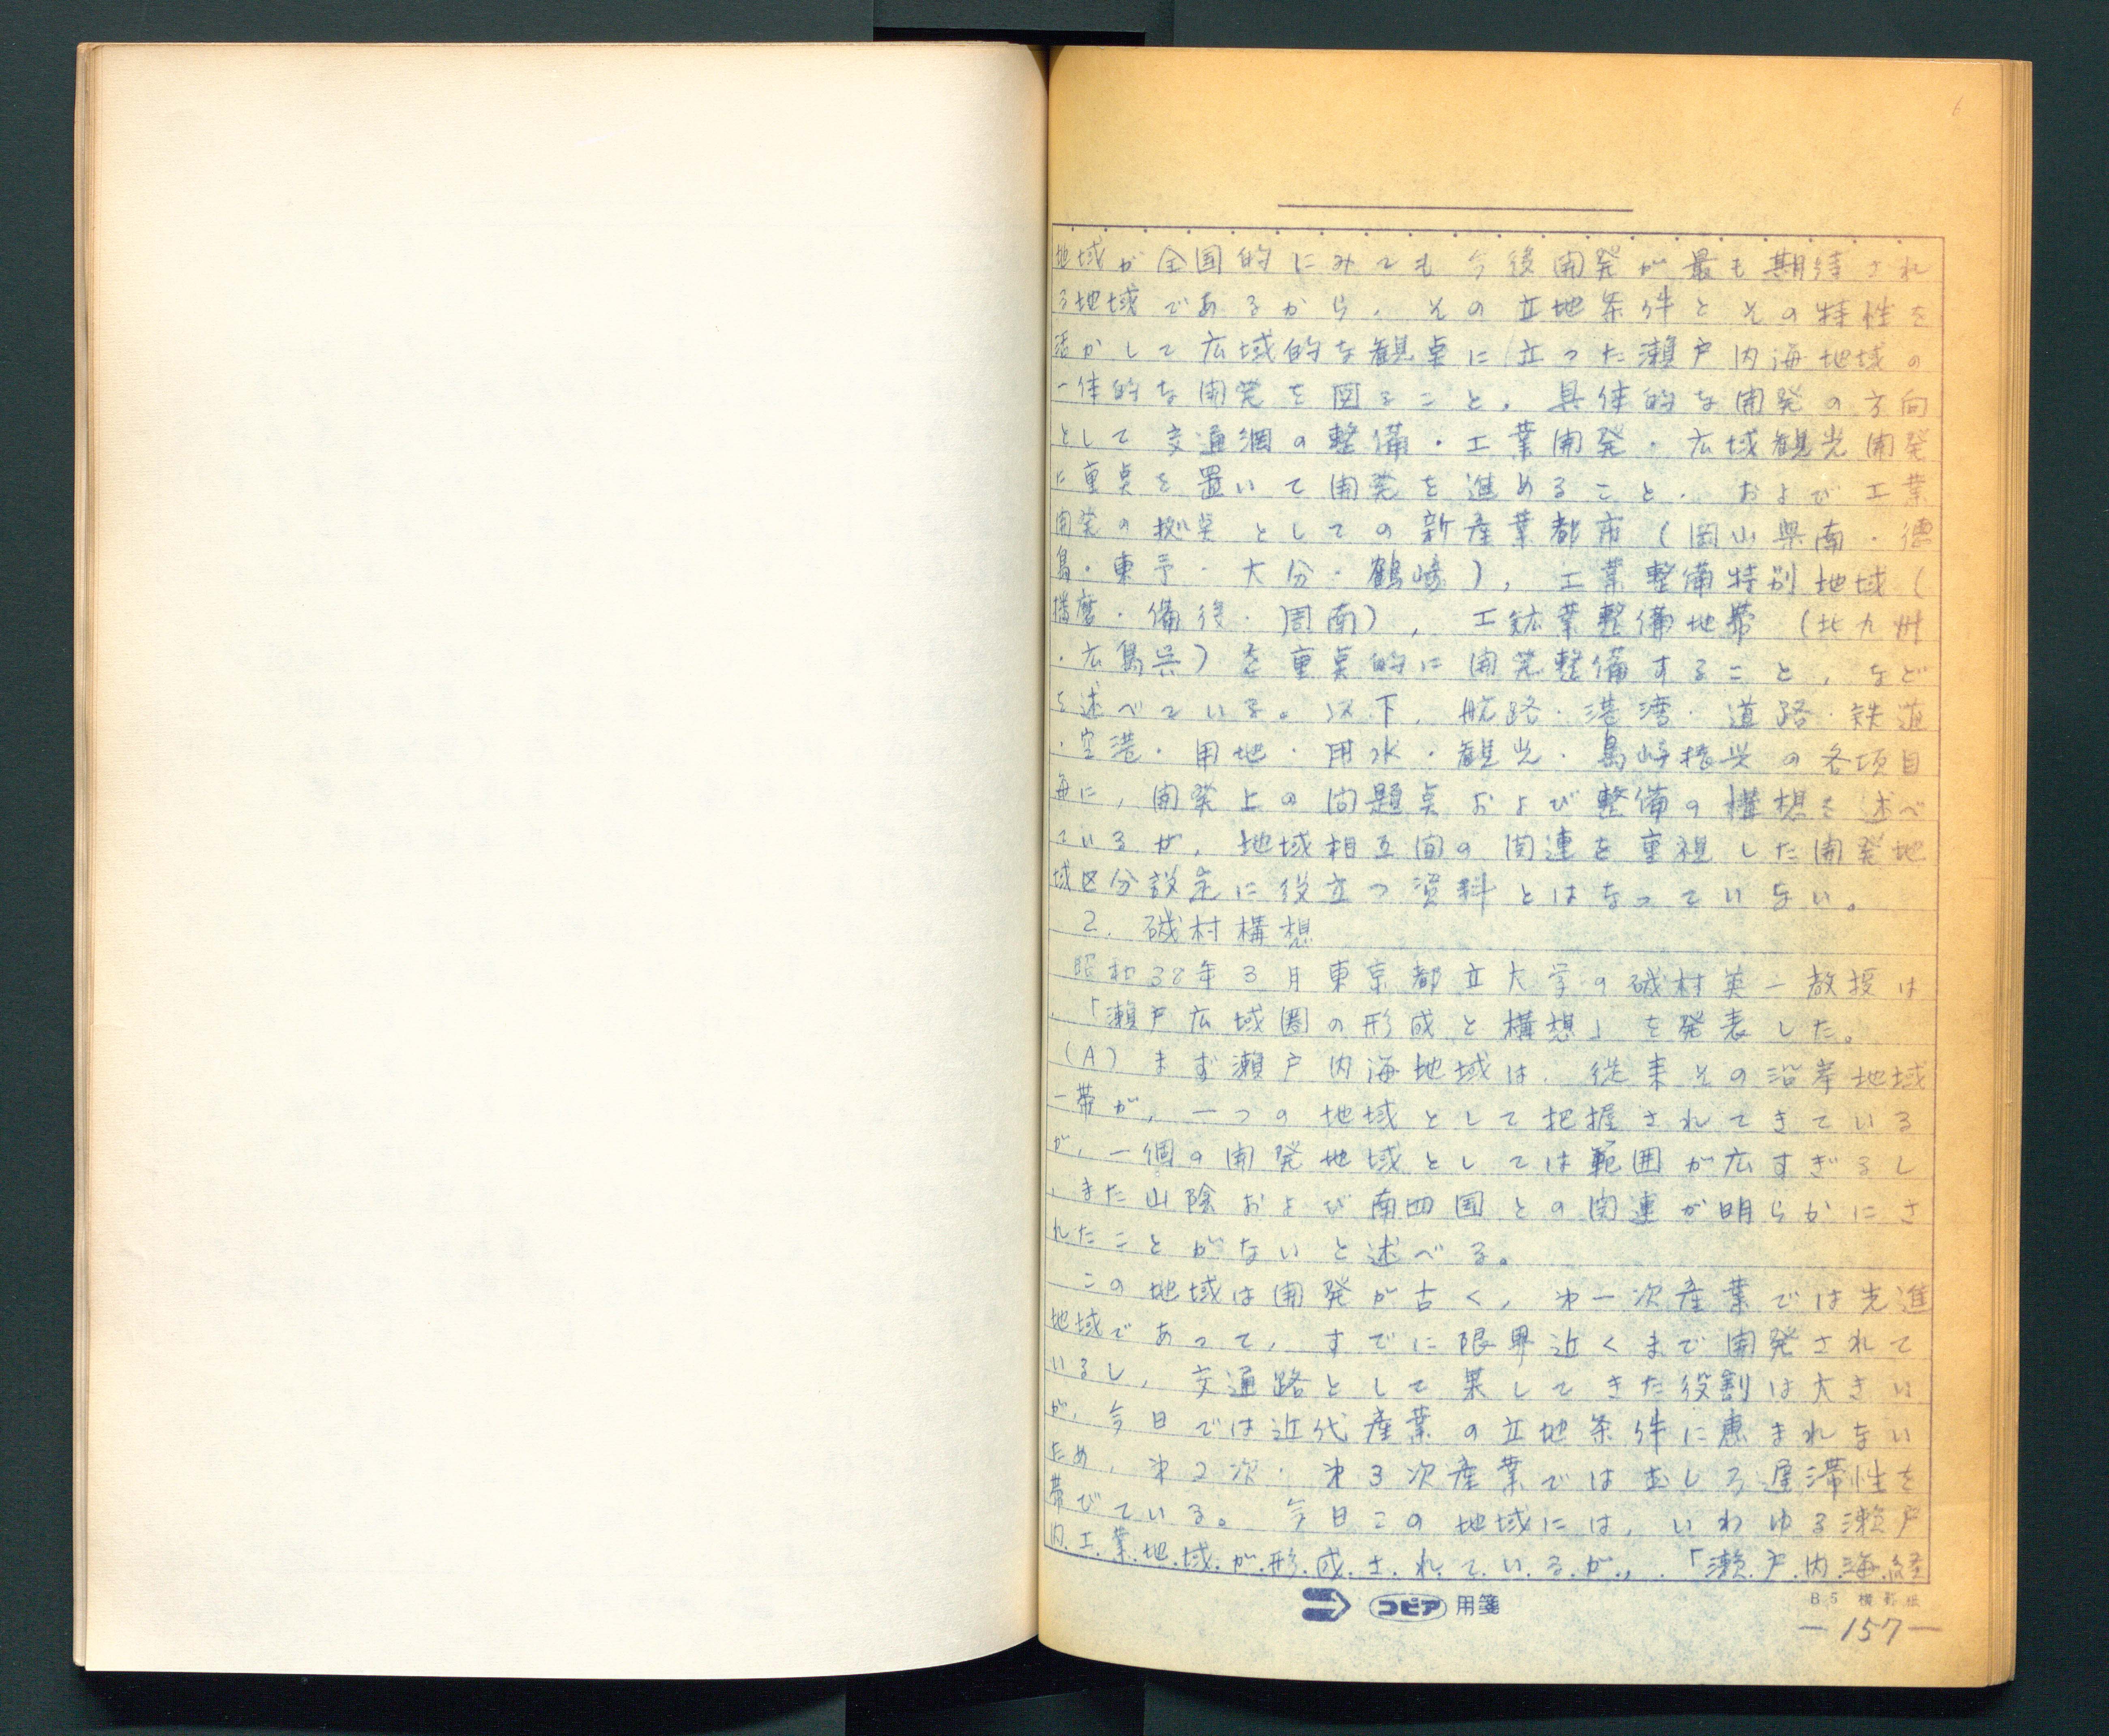 地域が全国的にみても今後開発が最も期待され
る地域であるから，その立地条件とその特性を
活かして広域的な観点に立った瀬戸内海地域の
一体的な開発を図ること，具体的な開発の方向
として交通網の整備・工業開発・広域観光開発
に重点を置いて開発を進めること，および工業
開発の拠点としての新産業都市（岡山県南・徳
島・東予・大分・鶴崎），工業整備特別地域（
播磨・備後・周南），工鉱業整備地帯（北九州
・広島呉）を重点的に開発整備すること，など
を述べている。以下，航路・港湾・道路・鉄道
・空港・用地・用水・観光・島嶼振興の各項目
毎に，開発上の問題点および整備の構想を述べ
ているが，地域相互間の関連を重視した開発地
域区分設定に役立つ資料とはなっていない。
2．磯村構想
昭和38年3月東京都立大学の磯村英一教授は
，「瀬戸広域圏の形成と構想」を発表した。
(A) まず瀬戸内海地域は，従来その沿岸地域
一帯が，一つの地域として把握されてきている
が，一個の開発地域としては範囲が広すぎるし
，また山陰および南四国との関連が明らかにさ
れたことがないと述べる。
この地域は開発が古く，才一次産業では先進
地域であって，すでに限界近くまで開発されて
いるし，交通路として果してきた役割は大きい
が，今日では近代産業の立地条件に恵まれない
ため，才2次・才3次産業ではむしろ遅滞性を
帯びている。今日この地域には，いわゆる瀬戸
内工業地域が形成されているが，「瀬戸内海経
コピア 用箋
B5 横罫紙
—157—